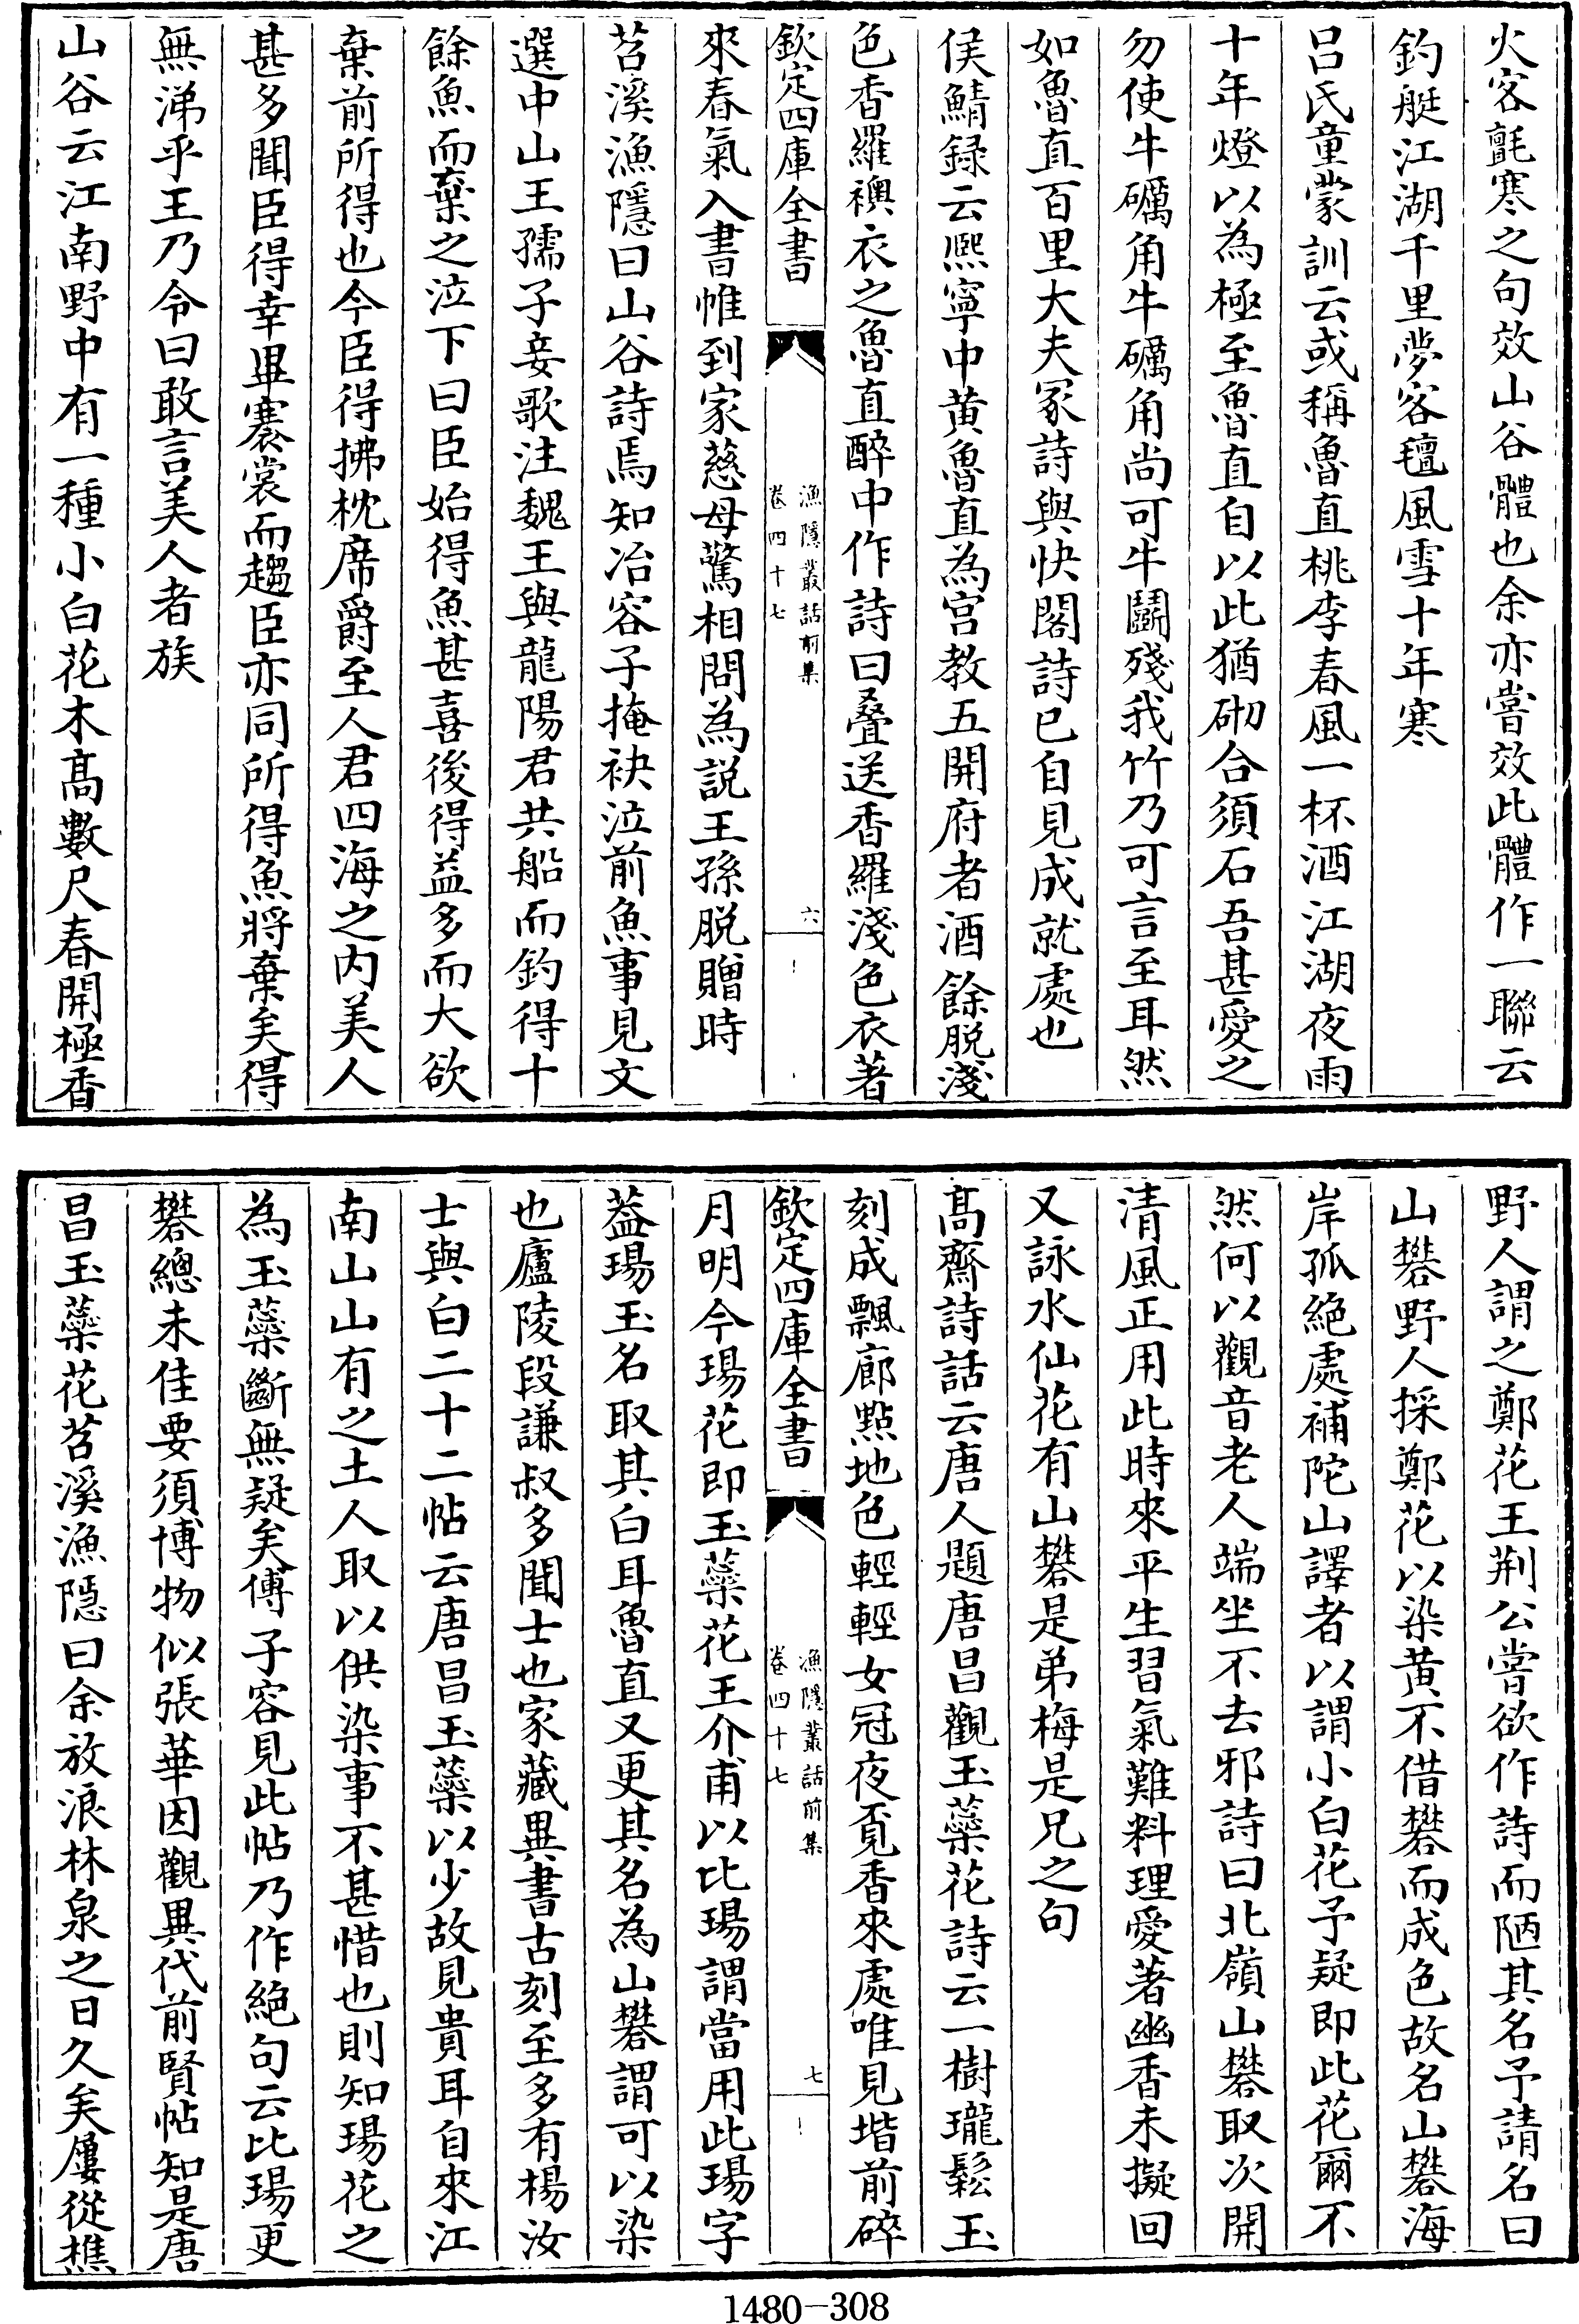 火客氈寒之句效山谷體也余亦嘗效此體作一聯云
釣艇江湖千里夢客氊風雪十年寒
吕氏童蒙訓云或稱魯直桃李春風一杯酒江湖夜雨
十年燈以為極至魯直自以此猶砌合須石吾甚愛之
勿使牛礪角牛礪角尚可牛鬭殘我竹乃可言至耳然
如魯直百里大夫冢詩與快閣詩已自見成就處也
侯鯖録云熈寧中黄魯直為宫教五開府者酒餘脱淺
色香羅襖衣之魯直醉中作詩曰叠送香羅淺色衣著
欽定四庫全書
漁隱叢話前集
卷四十七
六
來春氣入書帷到家慈母驚相問為説王孫脱贈時
苕溪漁隱曰山谷詩焉知冶容子掩袂泣前魚事見文
選中山王孺子妾歌注魏王與龍陽君共船而釣得十
餘魚而棄之泣下曰臣始得魚甚喜後得益多而大欲
棄前所得也今臣得拂枕席爵至人君四海之内美人
甚多聞臣得幸畢褰裳而趨臣亦同所得魚將棄矣得
無涕乎王乃令曰敢言美人者族
山谷云江南野中有一種小白花木髙數尺春開極香
野人謂之鄭花王荆公嘗欲作詩而陋其名予請名曰
山礬野人採鄭花以染黄不借礬而成色故名山礬海
岸孤絶處補陀山譯者以謂小白花予疑即此花爾不
然何以觀音老人端坐不去邪詩曰北嶺山礬取次開
清風正用此時來平生習氣難料理愛著幽香未擬回
又詠水仙花有山礬是弟梅是兄之句
髙齋詩話云唐人題唐昌觀玉蘂花詩云一樹瓏鬆玉
刻成飄廊㸃地色輕輕女冠夜覔香來處唯見堦前碎
欽定四庫全書
漁隱叢話前集
卷四十七
七
月明今瑒花即玉蘂花王介甫以比瑒謂當用此瑒字
葢瑒玉名取其白耳魯直又更其名為山礬謂可以染
也廬陵段謙叔多聞士也家藏異書古刻至多有楊汝
士與白二十二帖云唐昌玉蘂以少故見貴耳自來江
南山山有之土人取以供染事不甚惜也則知瑒花之
為玉蘂斷無疑矣傅子容見此帖乃作絶句云比瑒更
礬總未佳要須博物似張華因觀異代前賢帖知是唐
昌玉蘂花苕溪漁隠曰余放浪林泉之日久矣屢從樵
1480-308